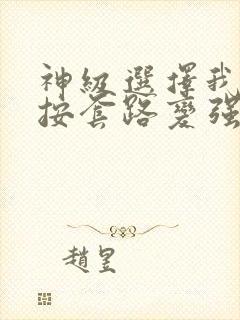 神級選擇我
按套路變強
趙昱